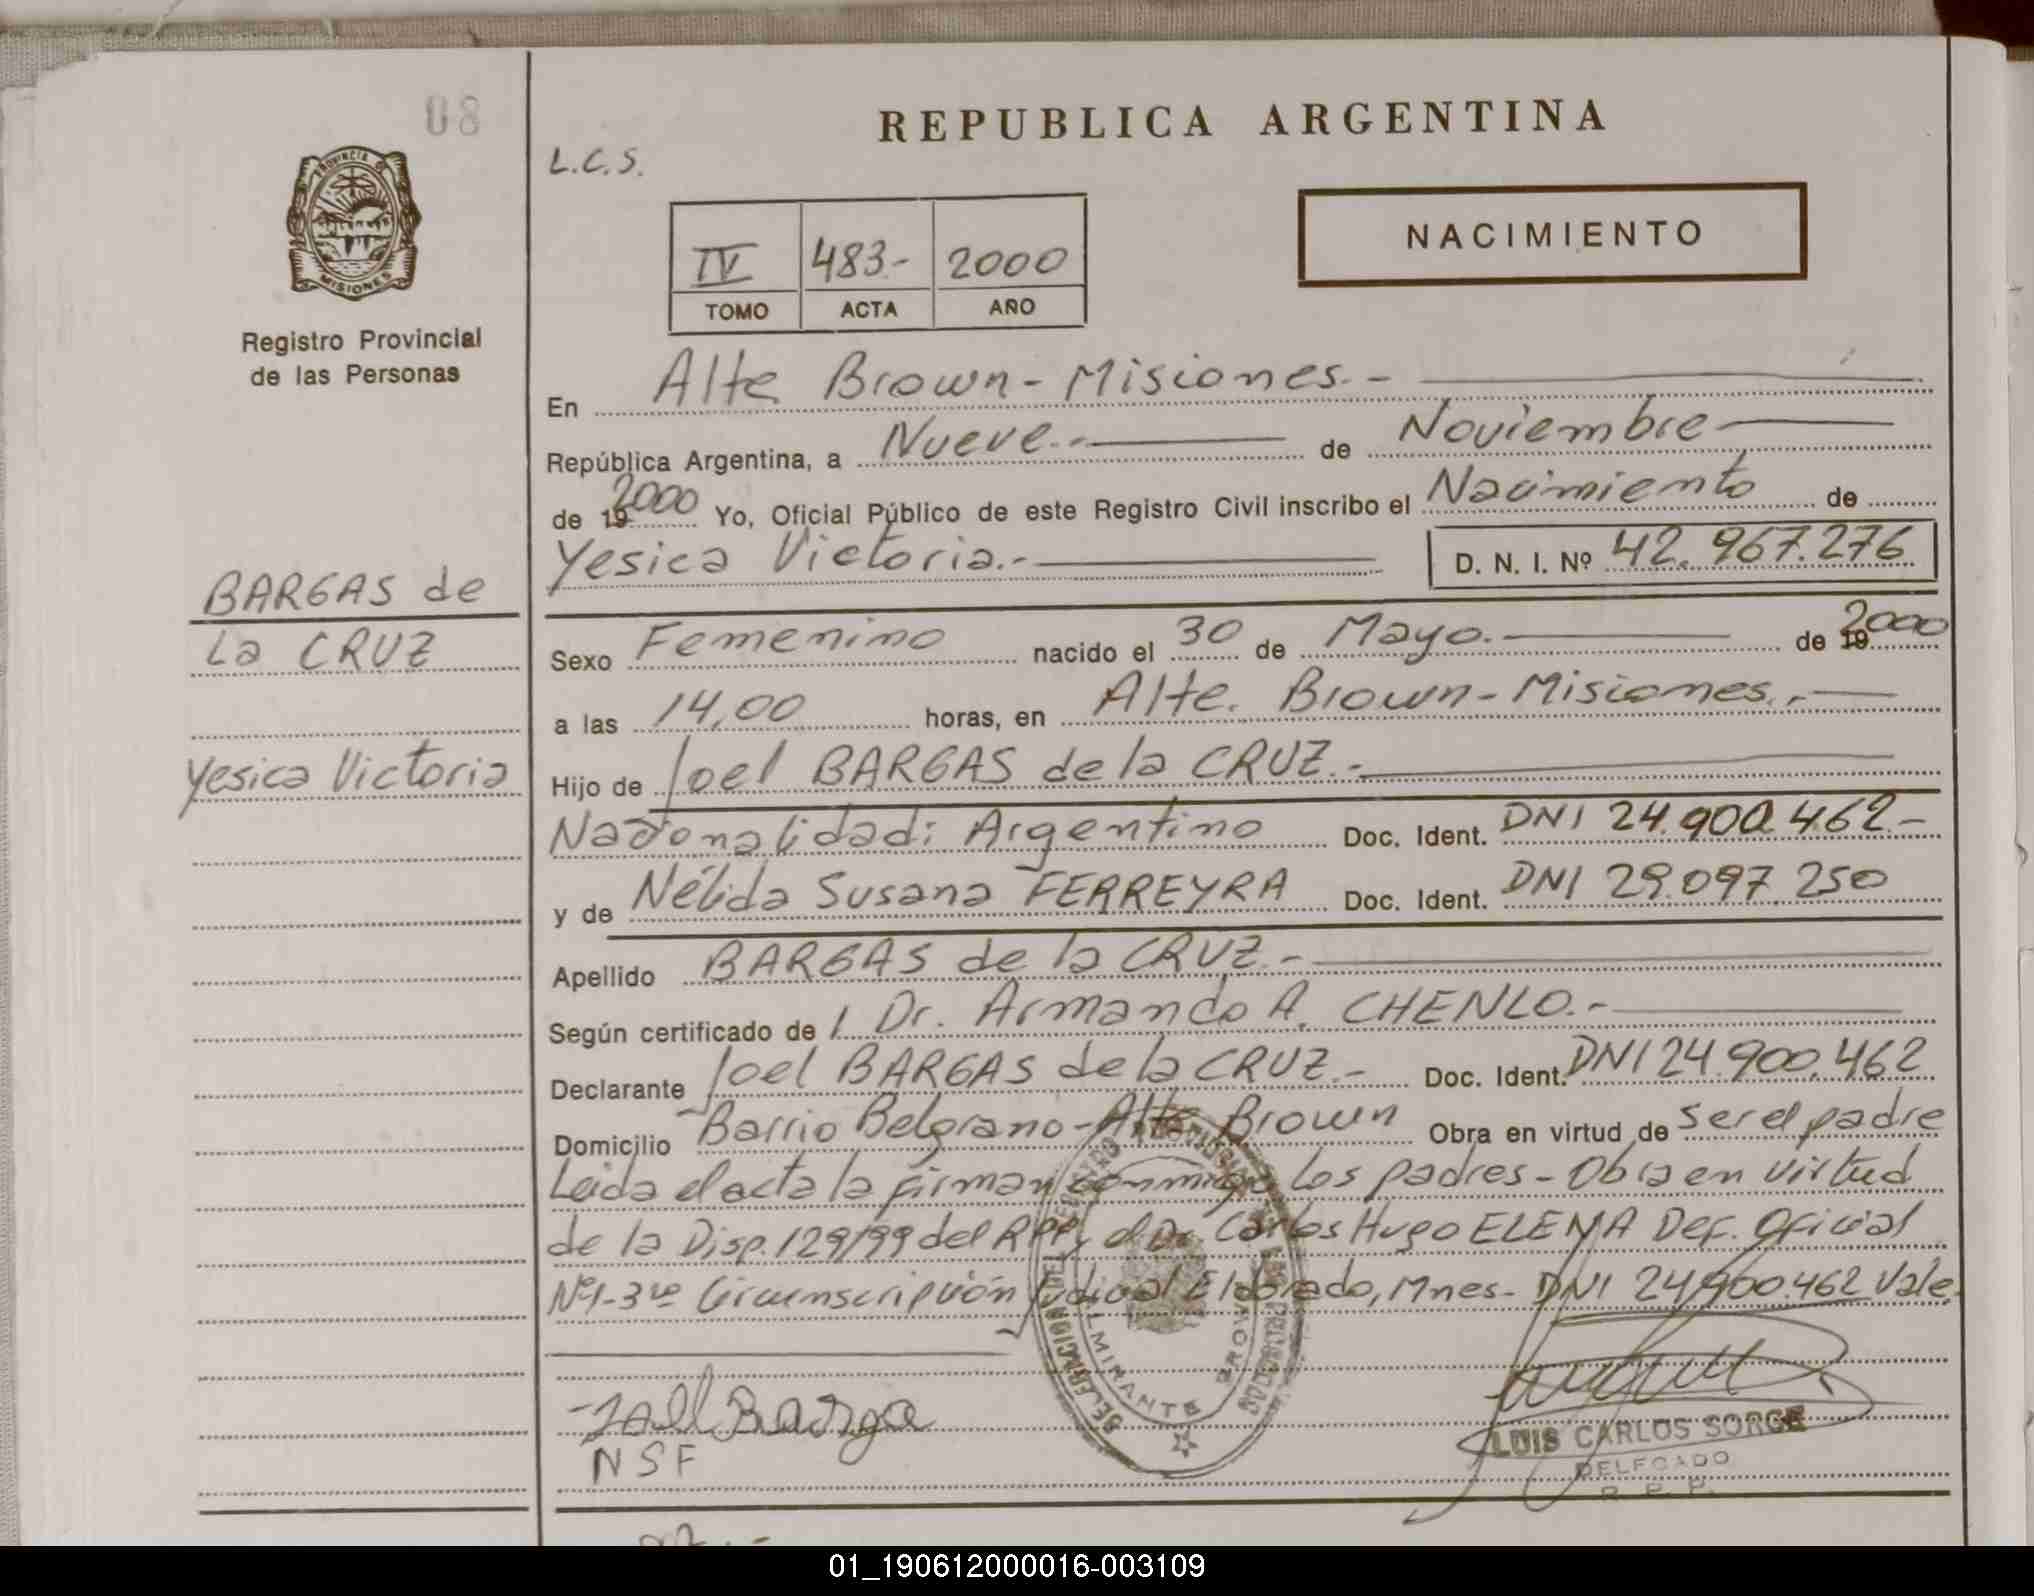 08
PROVINCIA DE
MISIONES
Registro Provincial
de las Personas
BARGAS de
La CRUZ
Yesica Victoria
REPUBLICA ARGENTINA
L.C.S.
NACIMIENTO
IV 483.- 2000
TOMO ACTA AÑO
En Alte Brown - Misiones.-
República Argentina, a Nueve.- de Noviembre
de 19 2000 Yo, Oficial Público de este Registro Civil inscribo el Nacimiento de
Yesica Victoria.- D. N. I. Nº 42.967.276
Sexo Femenino nacido el 30 de Mayo.- de 19 2000
a las 14,00 horas, en Alte. Brown - Misiones.-
Hijo de Joel BARGAS de la CRUZ.-
Nacionalidad: Argentino Doc. Ident. DNI 24.900.462-
y de Nélida Susana FERREYRA Doc. Ident. DNI 29.097.250
Apellido BARGAS de la CRUZ.-
Según certificado de Dr. Armando A. CHENLO.-
Declarante Joel BARGAS de la CRUZ.- Doc. Ident. DNI 24.900.462
Domicilio Barrio Belgrano - Alte Brown Obra en virtud de ser el padre
Leida el acta la firman conmigo los padres - Obra en virtud
de la Disp. 129/99 del RPP y el Dr Carlos Hugo ELENA Def. Oficial
Nº1-3ra Circunscripción Judicial Eldorado, Mnes - DNI 24.900.462 Vale.
Joel Barga
NSF
ALMIRANTE BROWN
LUIS CARLOS SORGE
DELEGADO
R. P. P.
01_190612000016-003109